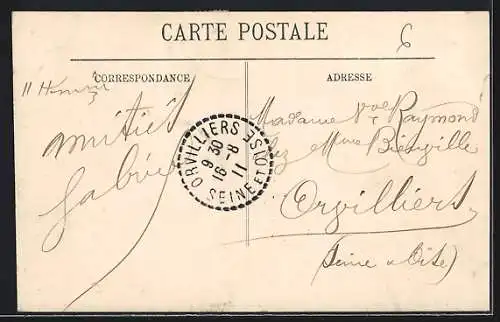 CARTE POSTALE
6
CORRESPONDANCE
ADRESSE
amitiés
ORVILLIERS
9 30
16 - 8
11
SEINE ET OISE
Madame Vve Raymond
chez Mme Bienville
Orvilliers
(Seine & Oise)